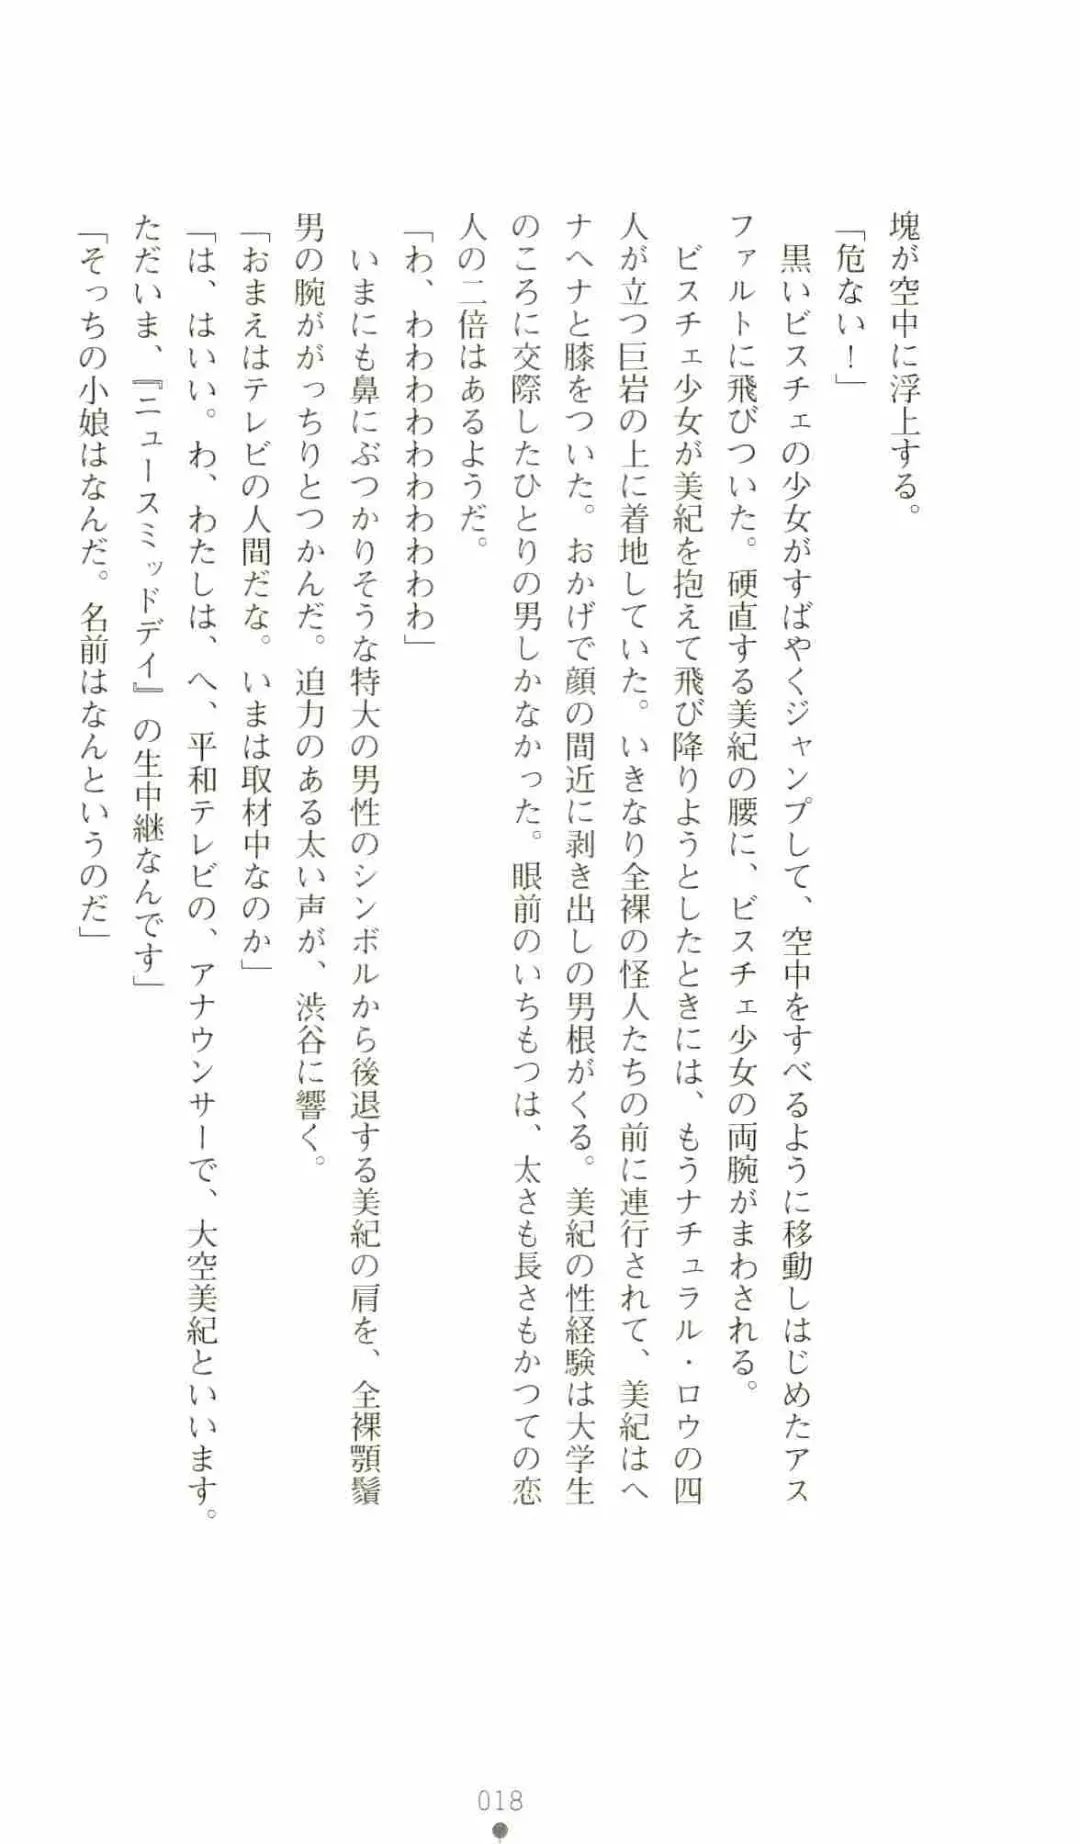 塊が空中に浮上する。
「危ない！」
　黒いビスチェの少女がすばやくジャンプして、空中をすべるように移動しはじめたアス
ファルトに飛びついた。硬直する美紀の腰に、ビスチェ少女の両腕がまわされる。
　ビスチェ少女が美紀を抱えて飛び降りようとしたときには、もうナチュラル・ロウの四
人が立つ巨岩の上に着地していた。いきなり全裸の怪人たちの前に連行されて、美紀はヘ
ナヘナと膝をついた。おかげで顔の間近に剥き出しの男根がくる。美紀の性経験は大学生
のころに交際したひとりの男しかなかった。眼前のいちもつは、太さも長さもかつての恋
人の二倍はあるようだ。
「わ、わわわわわわわわわ」
　いまにも鼻にぶつかりそうな特大の男性のシンボルから後退する美紀の肩を、全裸顎鬚
男の腕ががっちりとつかんだ。迫力のある太い声が、渋谷に響く。
「おまえはテレビの人間だな。いまは取材中なのか」
「は、はいい。わ、わたしは、へ、平和テレビの、アナウンサーで、大空美紀といいます。
ただいま、『ニュースミッドデイ』の生中継なんです」
「そっちの小娘はなんだ。名前はなんというのだ」
018